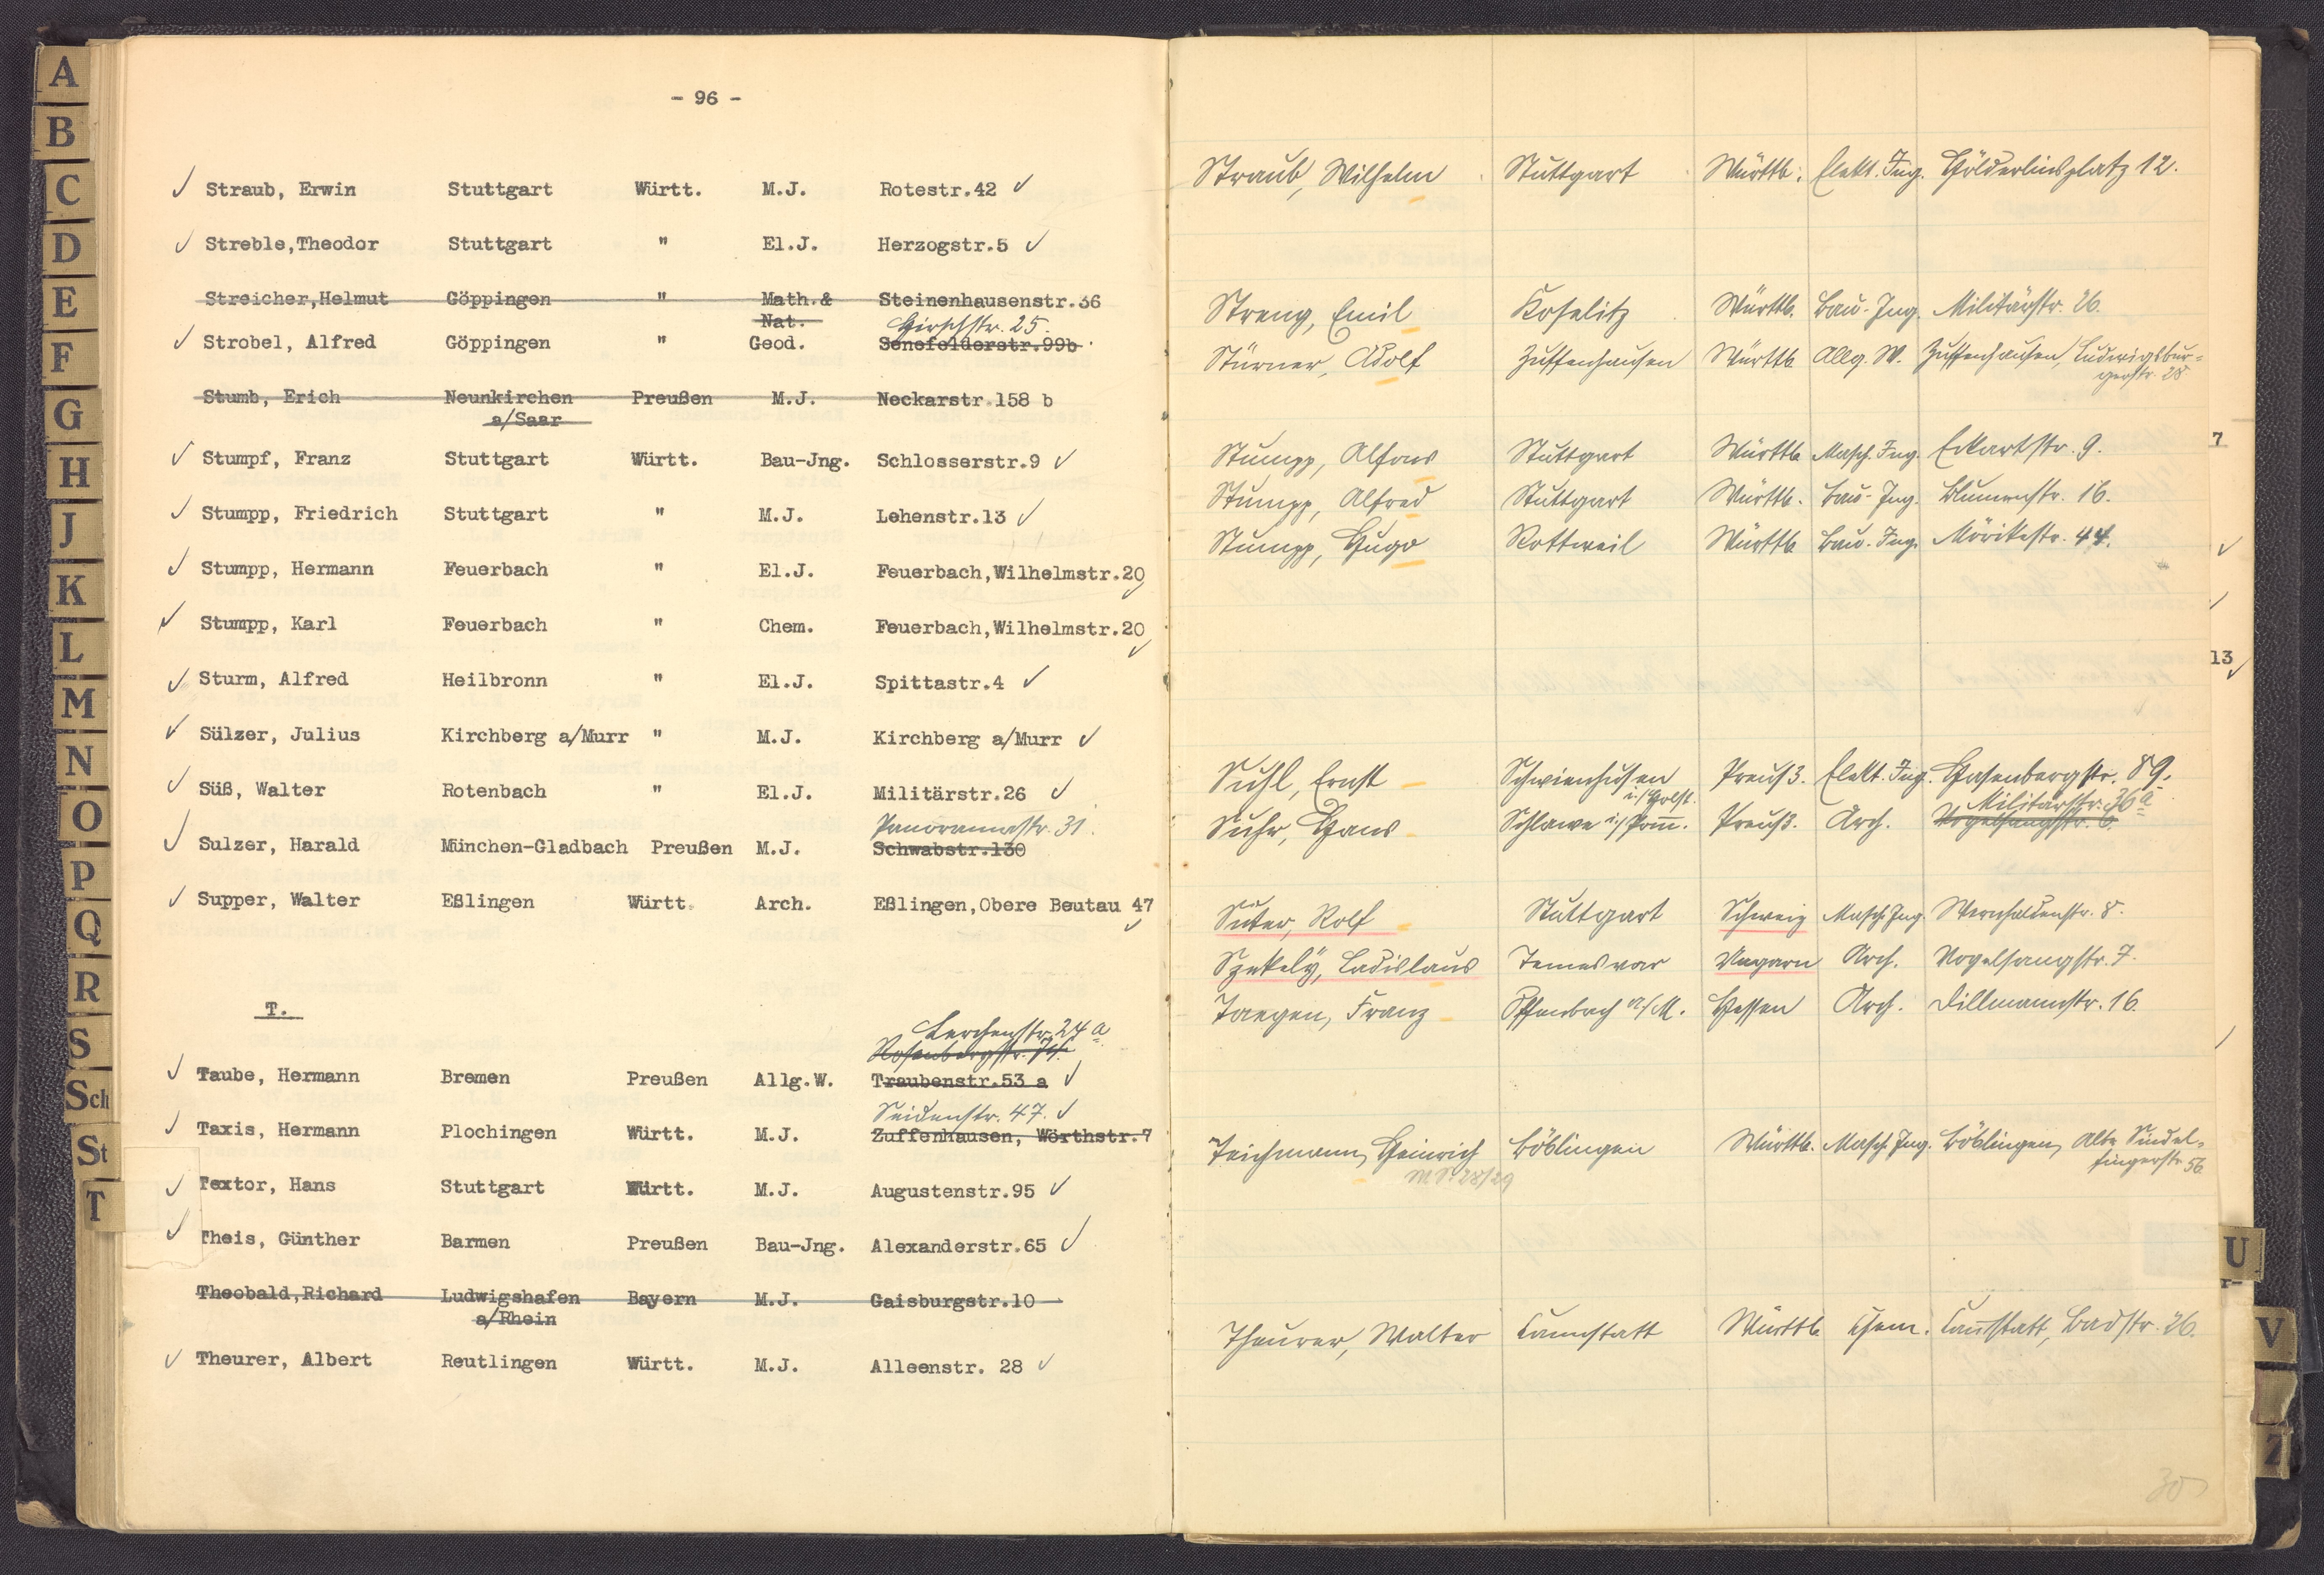 - 96 -
Straub, Erwin Stuttgart Württ. M.J. Rotestr.42
Streble,Theodor Stuttgart " El.J. Herzogstr.5
Streicher,Helmut Göppingen " Math.& Steinenhausenstr.36
Nat. Hirschstr. 25.
Strobel, Alfred Göppingen " Geod. Senefelderstr.99b
Stumb, Erich Neunkirchen Preußen M.J. Neckarstr.158 b
a/Saar
Stumpf, Franz Stuttgart Württ. Bau-Jng. Schlosserstr.9
Stumpp, Friedrich Stuttgart " M.J. Lehenstr.13
Stumpp, Hermann Feuerbach " El.J. Feuerbach,Wilhelmstr.20
Stumpp, Karl Feuerbach " Chem. Feuerbach,Wilhelmstr.20
Sturm, Alfred Heilbronn " El.J. Spittastr.4
Sülzer, Julius Kirchberg a/Murr " M.J. Kirchberg a/Murr
Süß, Walter Rotenbach " El.J. Militärstr.26
Panoramastr. 31.
Sulzer, Harald München-Gladbach Preußen M.J. Schwabstr.130
Supper, Walter Eßlingen Württ. Arch. Eßlingen,Obere Beutau 47
T.
Lerchenstr. 24 a
Rosenbergstr.
Taube, Hermann Bremen Preußen Allg.W. Traubenstr.53 a
Seidenstr. 47.
Taxis, Hermann Plochingen Württ. M.J. Zuffenhausen, Wörthstr.7
Textor, Hans Stuttgart Württ. M.J. Augustenstr.95
Theis, Günther Barmen Preußen Bau-Jng. Alexanderstr.65
Theobald,Richard Ludwigshafen Bayern M.J. Gaisburgstr.10
a/Rhein
Theurer, Albert Reutlingen Württ. M.J. Alleenstr. 28
Straub, Wilhelm Stuttgart Württb. Elekt. Ing. Hölderlinsplatz 12.
Streng, Emil Koselitz Württb. Bau-Ing. Militärstr. 26.
Stürner, Adolf Zuffenhausen Württb. Allg. W. Zuffenhausen, Ludwigsbur-
gerstr. 28
Stumpp, Alfons Stuttgart Württb. Masch. Ing. Eckartstr. 9.
Stumpp, Alfred Stuttgart Württb. Bau-Ing. Blumenstr. 16.
Stumpp, Hugo Rottweil Württb. Bau-Ing. Mörikestr. 44.
Suhl, Ernst Schwienhusen Preuß. Elekt. Ing. Hasenbergstr. 89.
i./Holst. Militärstr. 36a
Suhr, Hans Schlawe i./Pom. Preuß. Arch. Vogelsangstr. 6.
Suter, Rolf Stuttgart Schweiz Masch. Ing. Wernhaldenstr. 8.
Szekely, Ladislaus Temesvar Ungarn Arch. Vogelsangstr. 7.
Taegen, Franz Offenbach a/M. Hessen Arch. Dillmannstr. 16.
Teichmann, Heinrich Böblingen Württb. Masch. Ing. Böblingen, Alte Sindel-
fingerstr. 56
W.S. 28/29
Theurer, Walter Cannstatt Württb. Chem. Cannstatt, Badstr. 26.
30
7
13
A
B
C
D
E
F
G
H
J
K
L
M
N
O
P
Q
R
S
Sch
St
T
U
V
Z